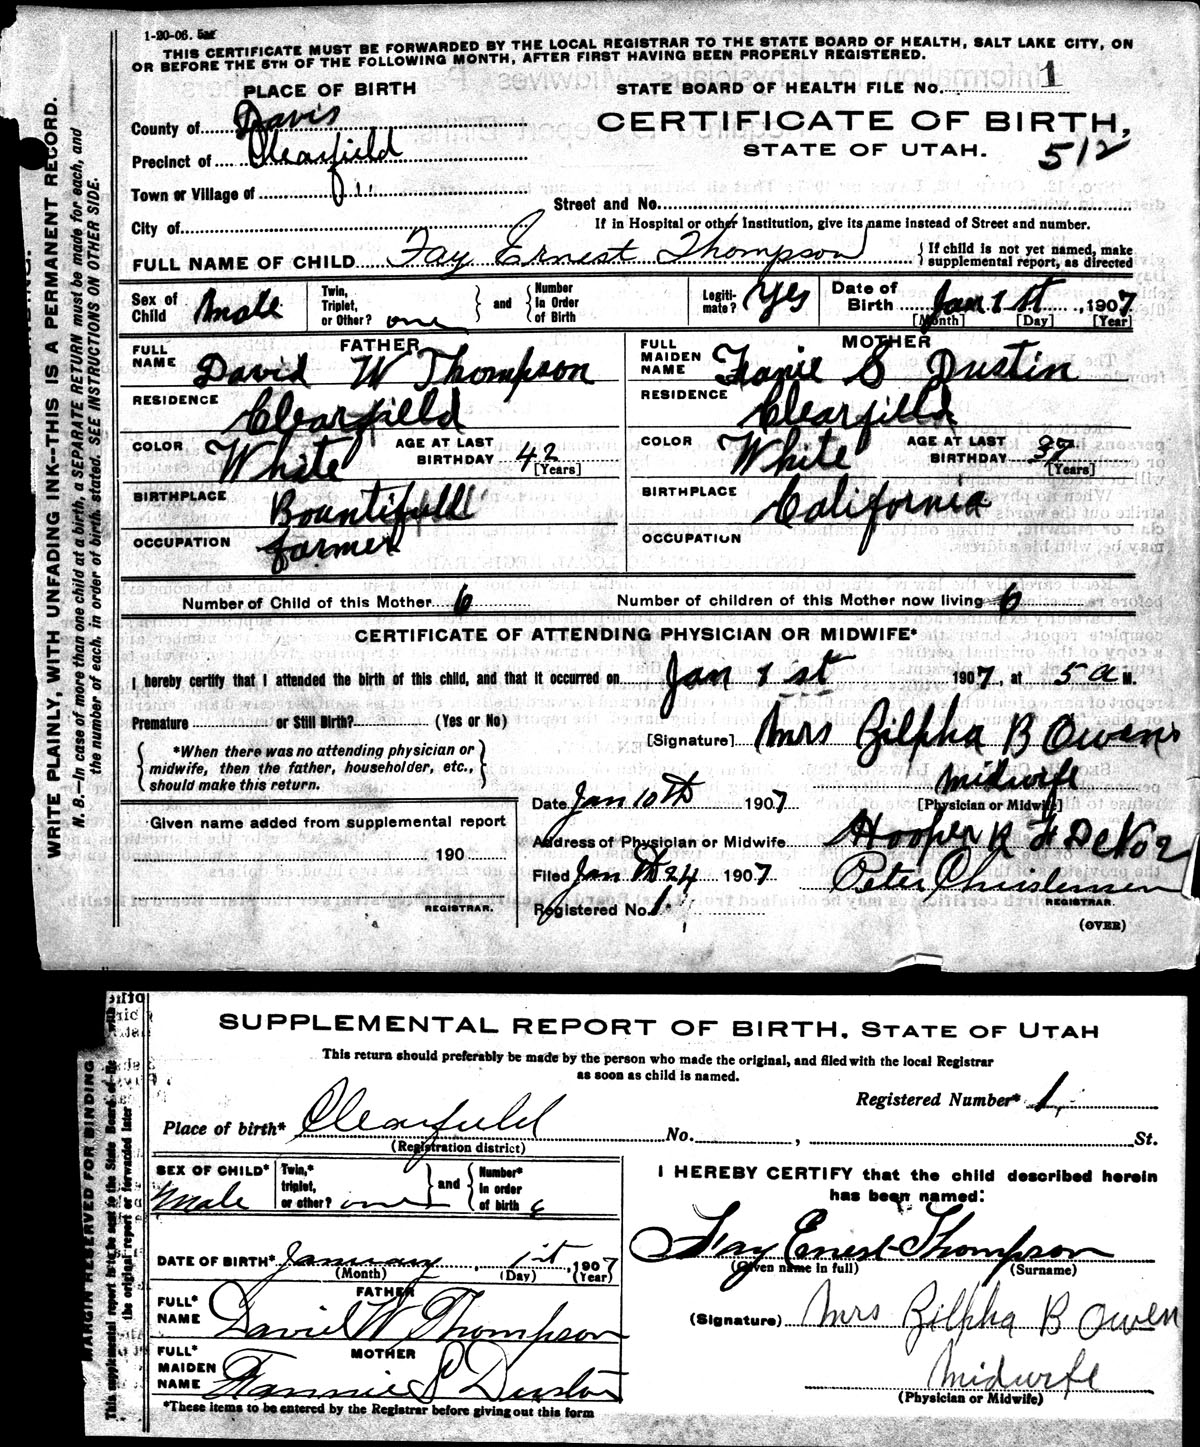 1-20-06.
THIS CERTIFICATE MUST BE FORWARDED BY THE LOCAL REGISTRAR TO THE STATE BOARD OF HEALTH, SALT LAKE CITY, ON
OR BEFORE THE 5TH OF THE FOLLOWING MONTH, AFTER FIRST HAVING BEEN PROPERLY REGISTERED.
WRITE PLAINLY, WITH UNFADING INK--THIS IS A PERMANENT RECORD.
N. B.--In case of more than one child at a birth, a SEPARATE RETURN must be made for each, and
the number of each, in order of birth, stated. SEE INSTRUCTIONS ON OTHER SIDE.
PLACE OF BIRTH
STATE BOARD OF HEALTH FILE No. 1
County of Davis
CERTIFICATE OF BIRTH,
Precinct of Clearfield
STATE OF UTAH.
512
Town or Village of
Street and No.
City of
If in Hospital or other Institution, give its name instead of Street and number.
FULL NAME OF CHILD Fay Ernest Thompson { If child is not yet named, make
supplemental report, as directed
Sex of Child Male
Twin, Triplet, or Other? one } and { Number in Order of Birth
Legiti-mate? Yes
Date of Birth Jan 1st, 1907
[Month] [Day] [Year]
FATHER
FULL NAME David W Thompson
RESIDENCE Clearfield
COLOR White AGE AT LAST BIRTHDAY 42
[Years]
BIRTHPLACE Bountifull
OCCUPATION farmer
MOTHER
FULL MAIDEN NAME Fanie S Dustin
RESIDENCE Clearfield
COLOR White AGE AT LAST BIRTHDAY 37
[Years]
BIRTHPLACE California
OCCUPATION
Number of Child of this Mother 6 Number of children of this Mother now living 6
CERTIFICATE OF ATTENDING PHYSICIAN OR MIDWIFE*
I hereby certify that I attended the birth of this child, and that it occurred on Jan 1st 1907, at 5 a M.
Premature or Still Birth? (Yes or No)
[Signature] Mrs Zilpha B Owens
{ *When there was no attending physician or
midwife, then the father, householder, etc.,
should make this return. }
midwife
[Physician or Midwife]
Date Jan 10th 1907
Given name added from supplemental report
190
REGISTRAR.
Address of Physician or Midwife Hooper R F D No 2
Filed Jan 24 1907 Peter Christensen
REGISTRAR.
Registered No. 1
(OVER)
SUPPLEMENTAL REPORT OF BIRTH, STATE OF UTAH
This return should preferably be made by the person who made the original, and filed with the local Registrar
as soon as child is named.
MARGIN RESERVED FOR BINDING
Registered Number* 1
Place of birth* Clearfield No. , St.
(Registration district)
SEX OF CHILD* Male
Twin,* triplet, or other? one } and { Number* in order of birth 6
DATE OF BIRTH* January 1st, 1907
(Month) (Day) (Year)
FATHER
FULL* NAME David W Thompson
MOTHER
FULL* MAIDEN NAME Fannie S Dustin
*These items to be entered by the Registrar before giving out this form
I HEREBY CERTIFY that the child described herein
has been named:
Fay Ernest Thompson
(Given name in full) (Surname)
(Signature) Mrs Zilpha B Owen
Midwife
(Physician or Midwife)